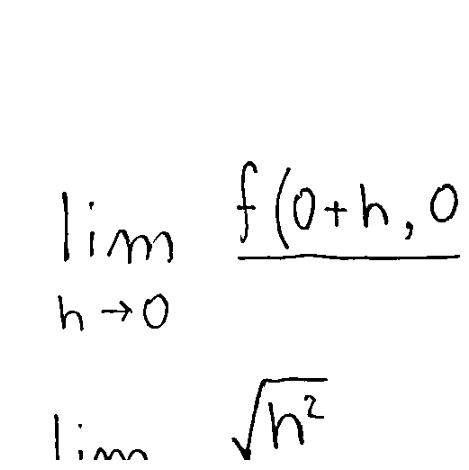 lim f(0+h, 0
h→0
lim √h²